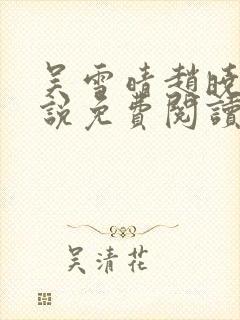 吳雪晴趙曉
說免費閱讀
吳清花